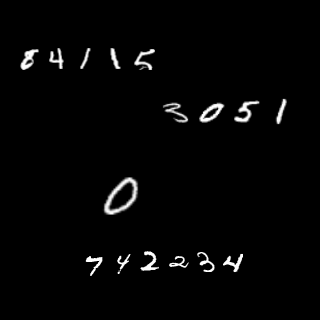 84115
3051
0
742234